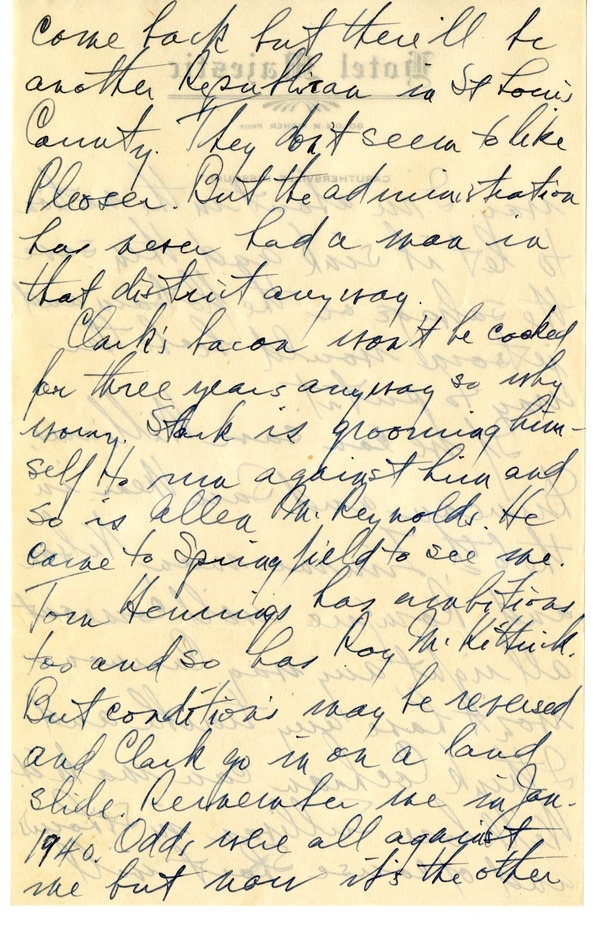 come back but there'll be
another Republican in St Louis
County. They don't seem to like
Ploeser. But the administration
has never had a man in
that district anyway.
Clark's bacon won't be cooked
for three years anyway so why
worry. Stark is grooming him-
self to run against him and
so is Allen McReynolds. He
came to Springfield to see me.
Tom Hennings has ambitions
too and so has Roy McKittrick.
But conditions may be reversed
and Clark go in on a land
slide. Remember me in Jan.
1940. Odds were all against
me but now it's the other